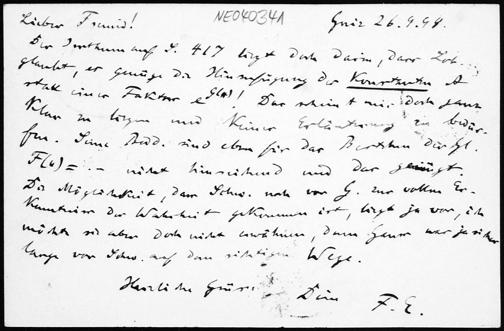 NE04034A
Lieber Freund! Graz 26.9.98.
Der Irrthum auf S. 417 liegt doch darin, dass Sch.
glaubt, es genüge die Hinzufügung der Konstanten A
statt eines Faktors e^G(u)! Das scheint mir doch ganz
klar zu liegen und keiner Erläuterung zu bedür-
fen. Seine sind eben für das Bestehen der Gl.
F(u) = .- nicht hinreichend und das genügt.
Die Möglichkeit, dass Schw. noch vor G. zur vollen Er-
kenntniss der Wahrheit gekommen ist, liegt ja vor, ich
möchte sie aber doch nicht erwähnen, denn Gauss war ja sicher
lange vor Schw. auf dem richtigen Wege.
Herzliche Grüsse Dein F. E.